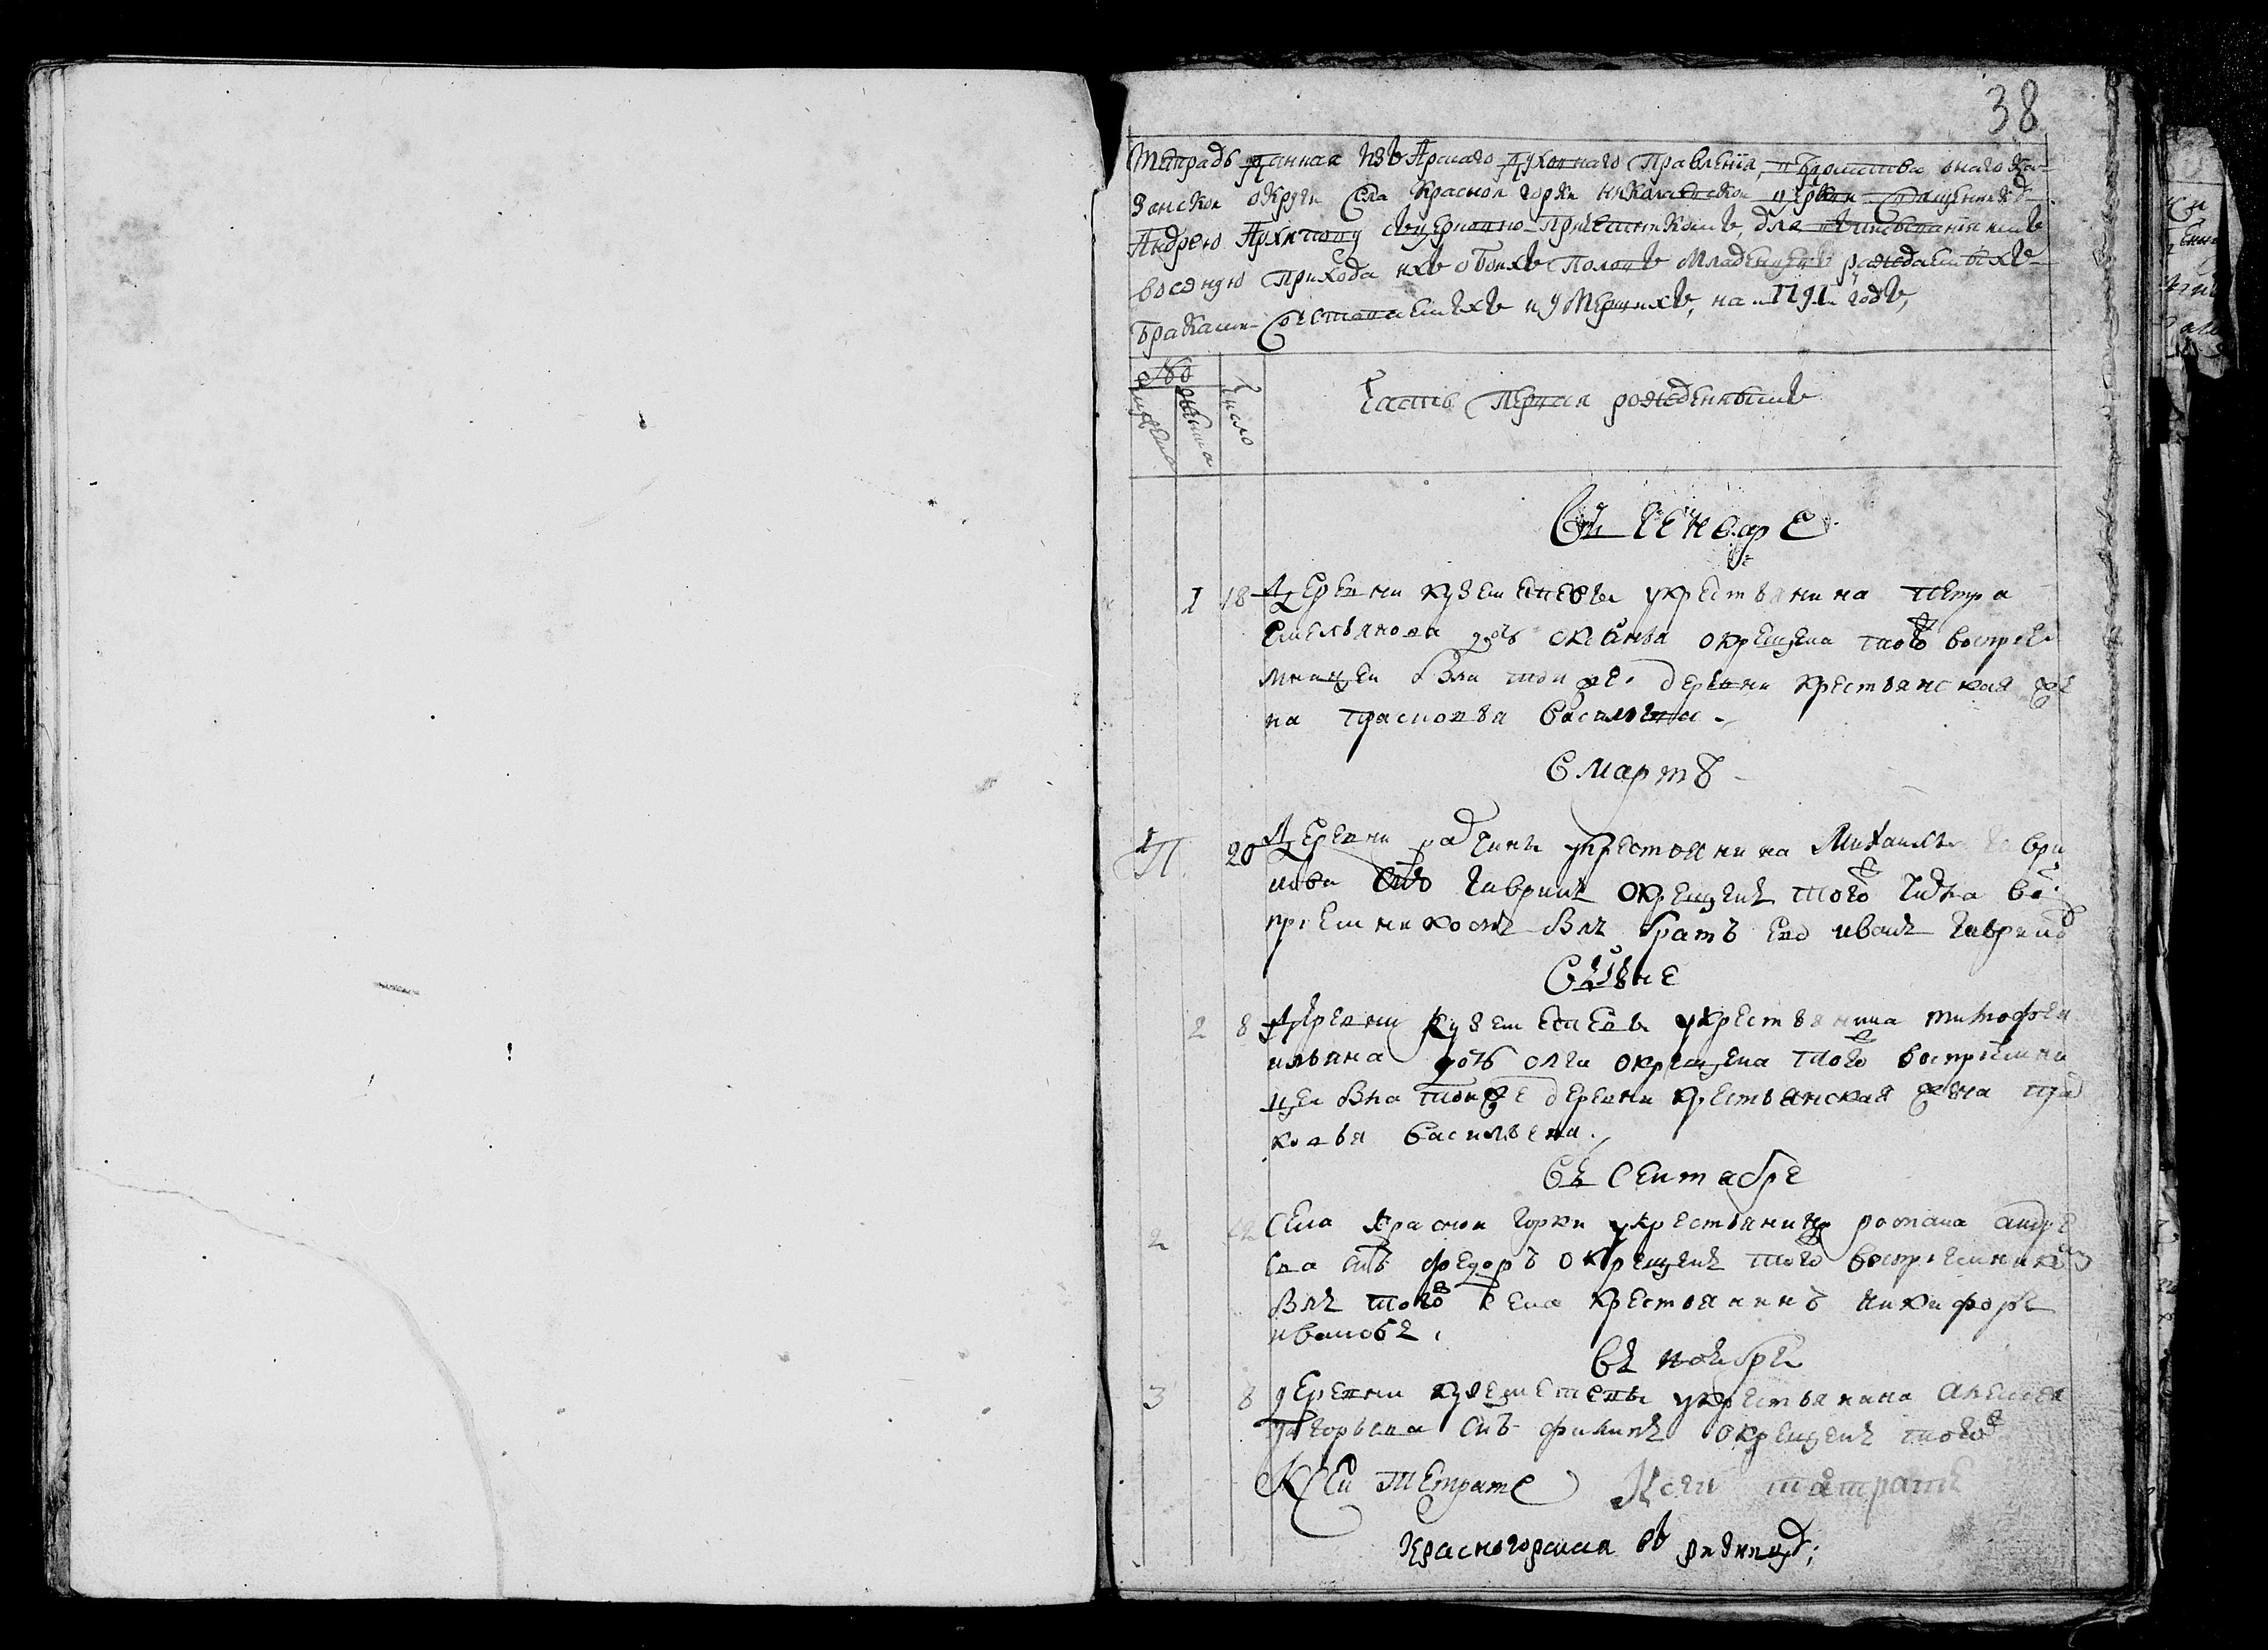 38
Тетрадь данная изъ Арскаго Духовнаго Правленiя, ведомства онаго Ка-
занской округи Села Красной горки Николаевской церкви Священнику
Андрею Архипову съцерковно-причетникомъ, для вписыванiя имъ
военую прихода ихъ обоихъ половъ младенцевъ раждаемыхъ
бракам Сочетаваемыхъ и умершихъ, на 1791 годъ,
число
Часть Первая рожденнымъ
Съ Генваре
1 18 Деревни Кузем у крестьянина Петра
Емельянова дочь окрещена того воспрее
мницей бы той же деревни крестьянская же
на васильева
В мартѣ
1 20 Деревни у крестьянина Михаила Гаври
лова снъ Гаврилъ окрещенъ того числа во
преемникомъ былъ братъ его иванъ Гаврило
Въ Iюне
2 8 Деревни Кузем у крестьянина тимофея
ильина дочь окрещена того воспрiемни
цеи была тои же деревни крестьянская жена пра
ковья васильева
Въ Сентябре
2 12 Села Красной горки у крестьянина романа андре
ева снъ федоръ окрещенъ того воспрiемникомъ
былъ того села крестьянинъ никифоръ
ивановъ
Въ ноябре
3 8 деревни у крестьянина алексея
григорьева снъ филипъ окрещенъ того
К сей тетрате К сей тетрате
Красногорская